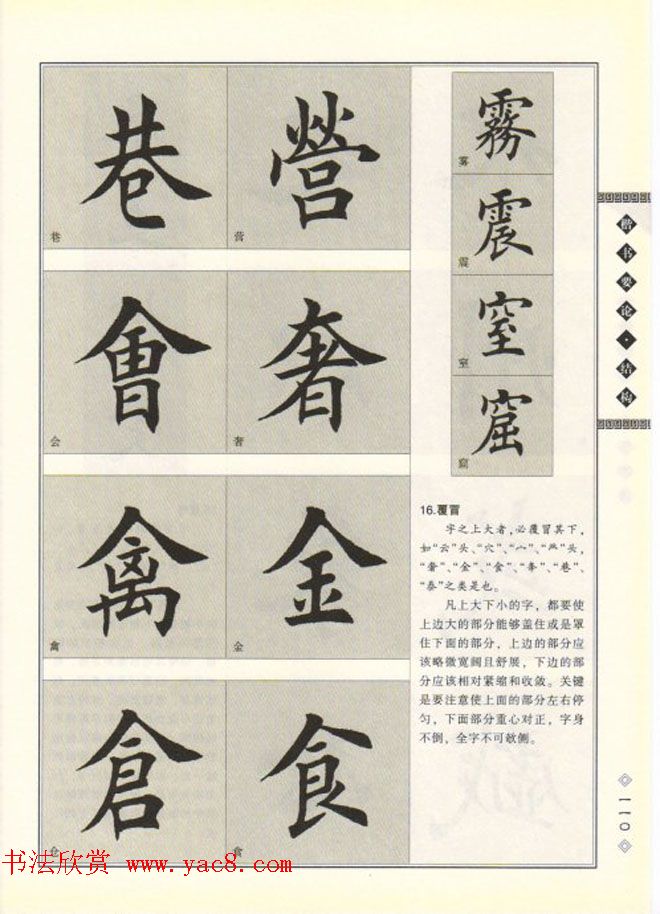 巷
巷
營
营
霧
雾
震
震
窒
室
窟
窟
會
会
奢
奢
禽
禽
金
金
倉
仓
食
食
16.覆冒
字之上大者，必覆冒其下，
如“云”头、“穴”、“宀”、“𤇾”头，
“奢”、“金”、“食”、“夅”、“巷”、
“泰”之类是也。
凡上大下小的字，都要使
上边大的部分能够盖住或是罩
住下面的部分，上边的部分应
该略微宽阔且舒展，下边的部
分应该相对紧缩和收敛。关键
是要注意使上面的部分左右停
匀，下面部分重心对正，字身
不倒，全字不可欹侧。
楷书要论·结构
一一〇
书法欣赏 www.yac8.com